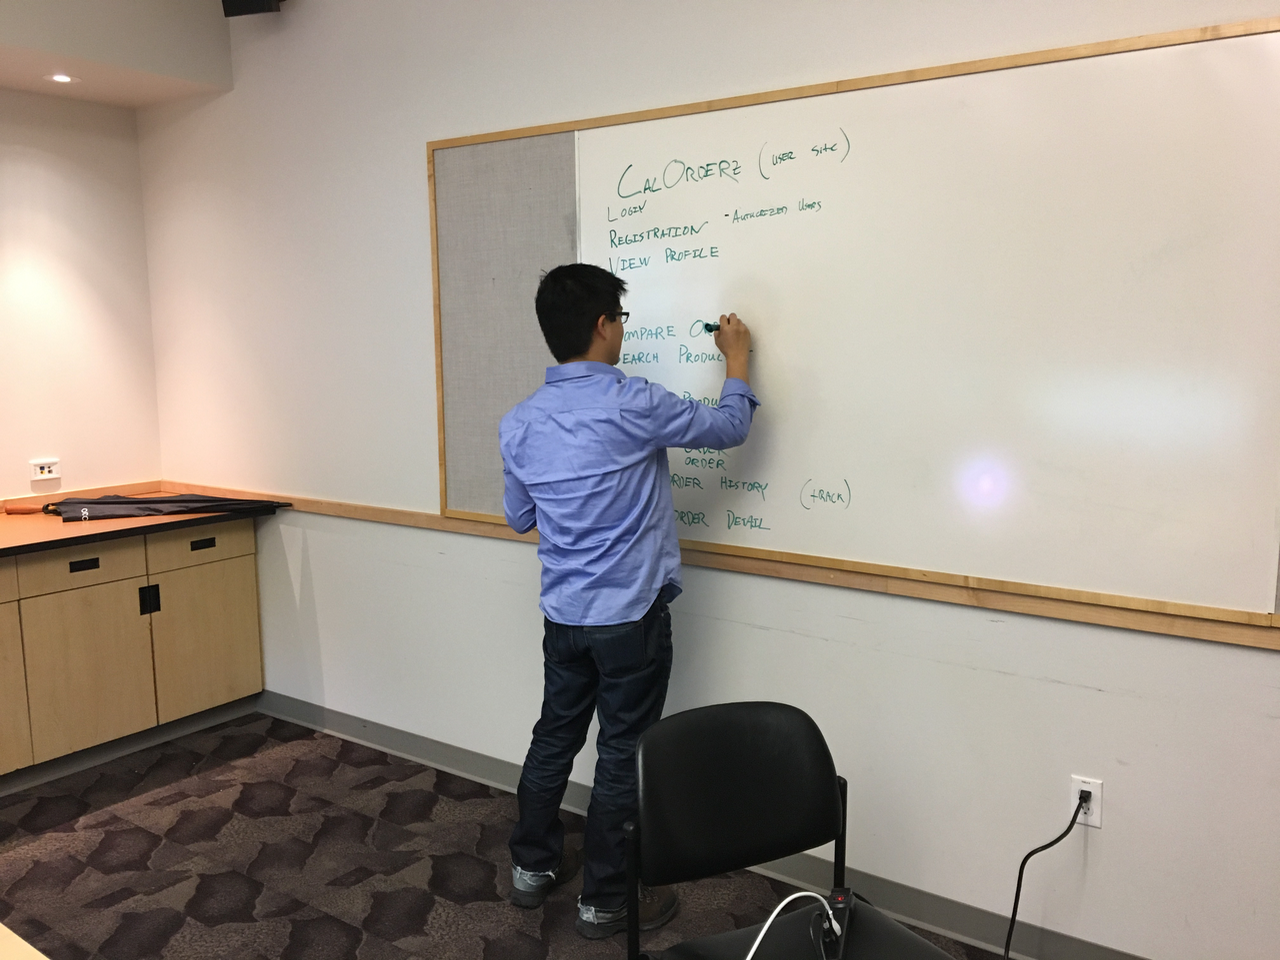 CALORDERZ (USER SITE)
LOGIN
REGISTRATION - AUTHORIZED USERS
VIEW PROFILE
OMPARE OR
EARCH PRODUC
PRODU
ORDER
ORDER
ORDER HISTORY (TRACK)
ORDER DETAIL